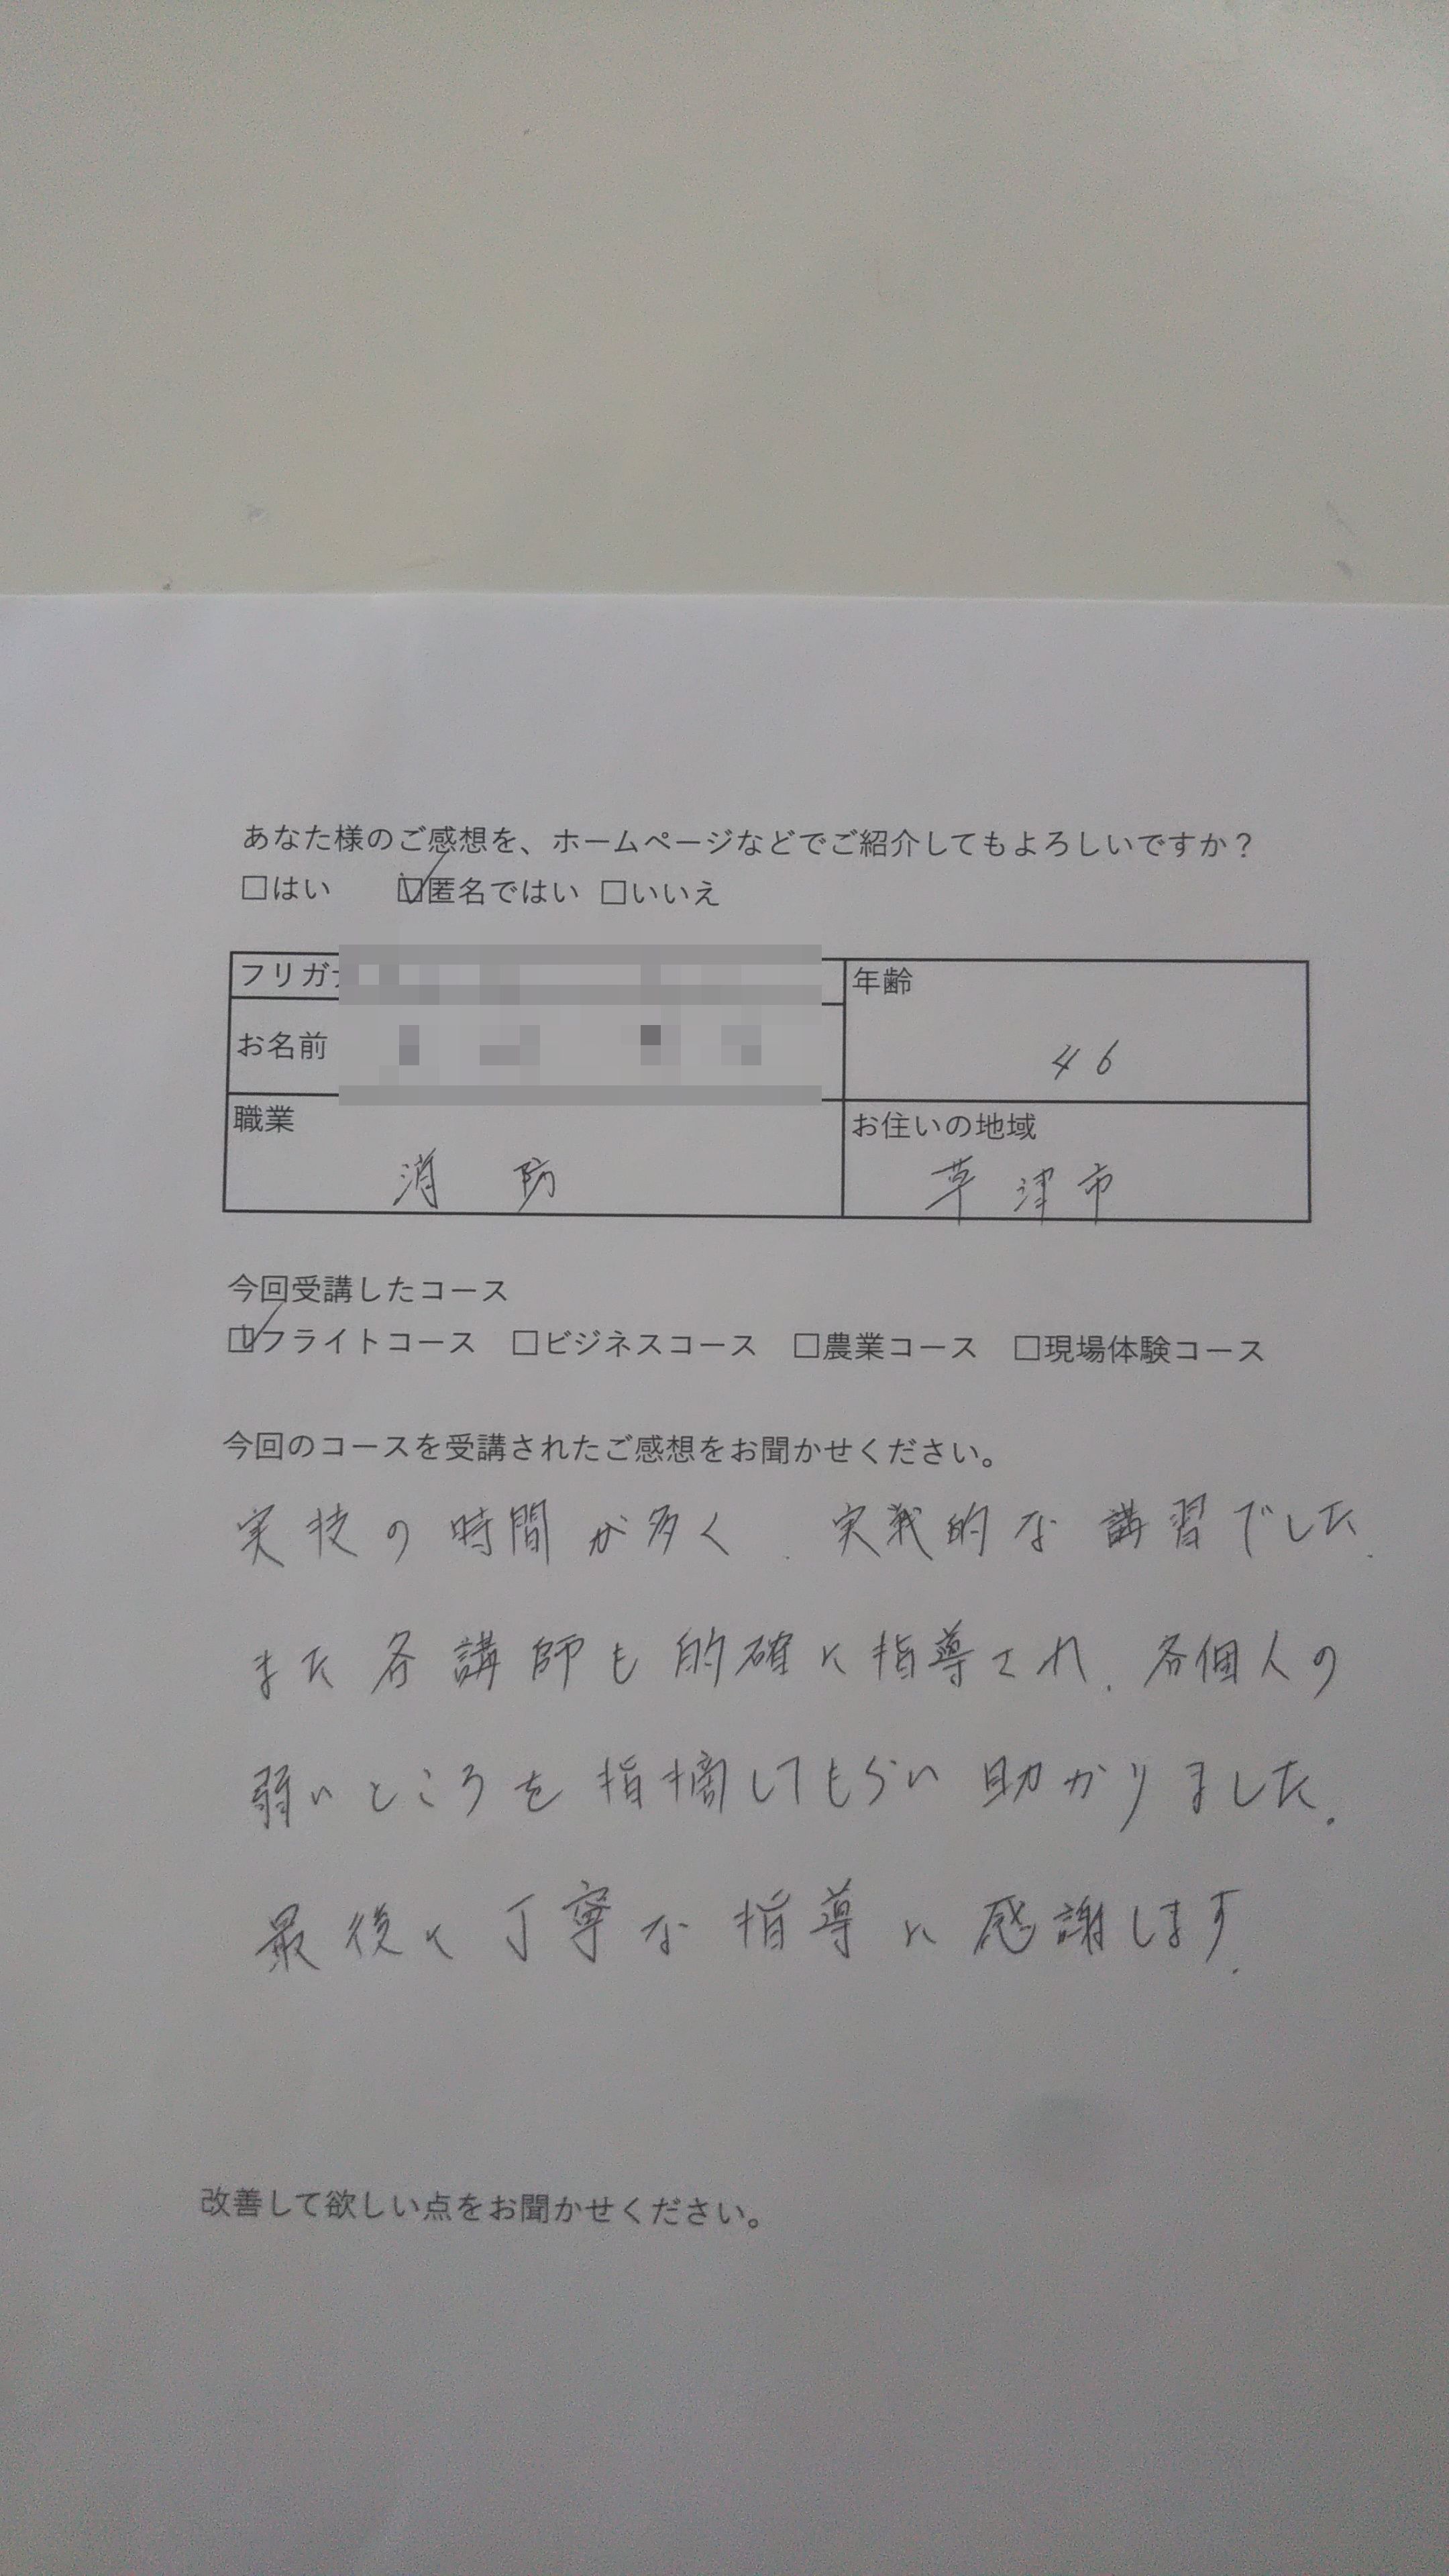 あなた様のご感想を、ホームページなどでご紹介してもよろしいですか？
□はい ☑匿名ではい □いいえ
フリガナ
年齢
お名前
46
職業
お住いの地域
消防
草津市
今回受講したコース
☑フライトコース □ビジネスコース □農業コース □現場体験コース
今回のコースを受講されたご感想をお聞かせください。
実技の時間が多く、実戦的な講習でした。
また各講師も的確に指導され、各個人の
弱いところを指摘してもらい助かりました。
最後に丁寧な指導に感謝します。
改善して欲しい点をお聞かせください。